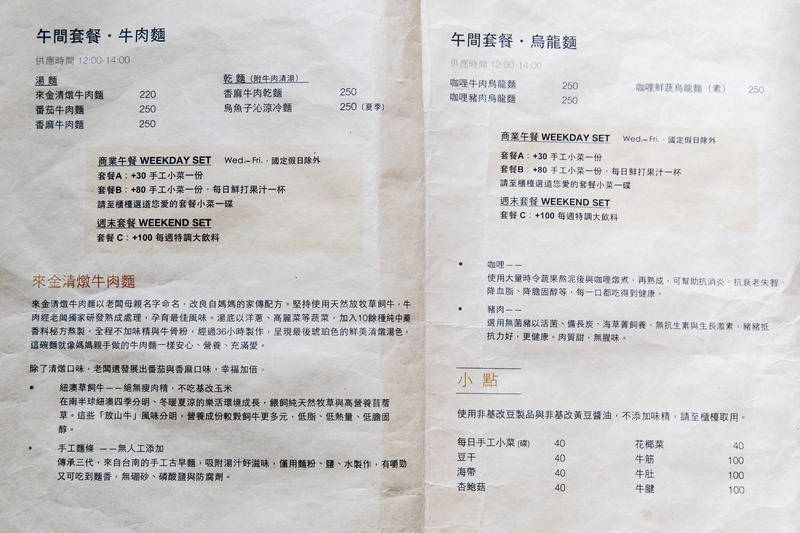 午間套餐・牛肉麵
供應時間 12:00-14:00
湯 麵
來金清燉牛肉麵 220
番茄牛肉麵 250
香麻牛肉麵 250
乾 麵（附牛肉清湯）
香麻牛肉乾麵 250
烏魚子沁涼冷麵 250（夏季）
商業午餐 WEEKDAY SET Wed.– Fri.，國定假日除外
套餐A：+30 手工小菜一份
套餐B：+80 手工小菜一份，每日鮮打果汁一杯
請至櫃檯選這您愛的套餐小菜一碟
週末套餐 WEEKEND SET
套餐 C：+100 每週特調大飲料
來金清燉牛肉麵
來金清燉牛肉麵以老闆母親名字命名，改良自媽媽的家傳配方。堅持使用天然放牧草飼牛，牛
肉經老闆獨家研發熟成處理，孕育最佳風味。湯底以洋蔥、高麗菜等蔬菜，加入10餘種純中藥
香料秘方熬製，全程不加味精與牛骨粉，經過36小時製作，呈現最後琥珀色的鮮美清燉湯色，
這碗麵就像媽媽親手做的牛肉麵一樣安心、營養、充滿愛。
除了清燉口味，老闆還發展出番茄與香麻口味，幸福加倍。
• 紐澳草飼牛——絕無瘦肉精，不吃基改玉米
在南半球紐澳四季分明、冬暖夏涼的樂活環境成長，餵飼純天然牧草與高營養苜蓿
草。這些「放山牛」風味分明，營養成份較穀飼牛更多元，低脂、低熱量、低膽固
醇。
• 手工麵條 ——無人工添加
傳承三代，來自台南的手工古早麵，吸附湯汁好滋味，僅用麵粉、鹽、水製作，有嚼勁
又可吃到麵香，無硼砂、磷酸鹽與防腐劑。
午間套餐・烏龍麵
供應時間 12:00-14:00
咖哩牛肉烏龍麵 250
咖哩豬肉烏龍麵 250
咖哩鮮蔬烏龍麵（素） 250
商業午餐 WEEKDAY SET Wed.– Fri.，國定假日除外
套餐A：+30 手工小菜一份
套餐B：+80 手工小菜一份，每日鮮打果汁一杯
請至櫃檯選這您愛的套餐小菜一碟
週末套餐 WEEKEND SET
套餐 C：+100 每週特調大飲料
• 咖哩——
使用大量時令蔬果熬泥後與咖哩燉煮，再熟成，可幫助抗消炎、抗衰老失智
降血脂、降膽固醇等，每一口都吃得到健康。
• 豬肉——
選用無菌豬以活菌、備長炭、海草菁飼養，無抗生素與生長激素，豬豬抵
抗力好，更健康。肉質甜，無腥味。
小 點
使用非基改豆製品與非基改黃豆醬油，不添加味精，請至櫃檯取用。
每日手工小菜(碟) 40
豆干 40
海帶 40
杏鮑菇 40
花椰菜 40
牛筋 100
牛肚 100
牛腱 100